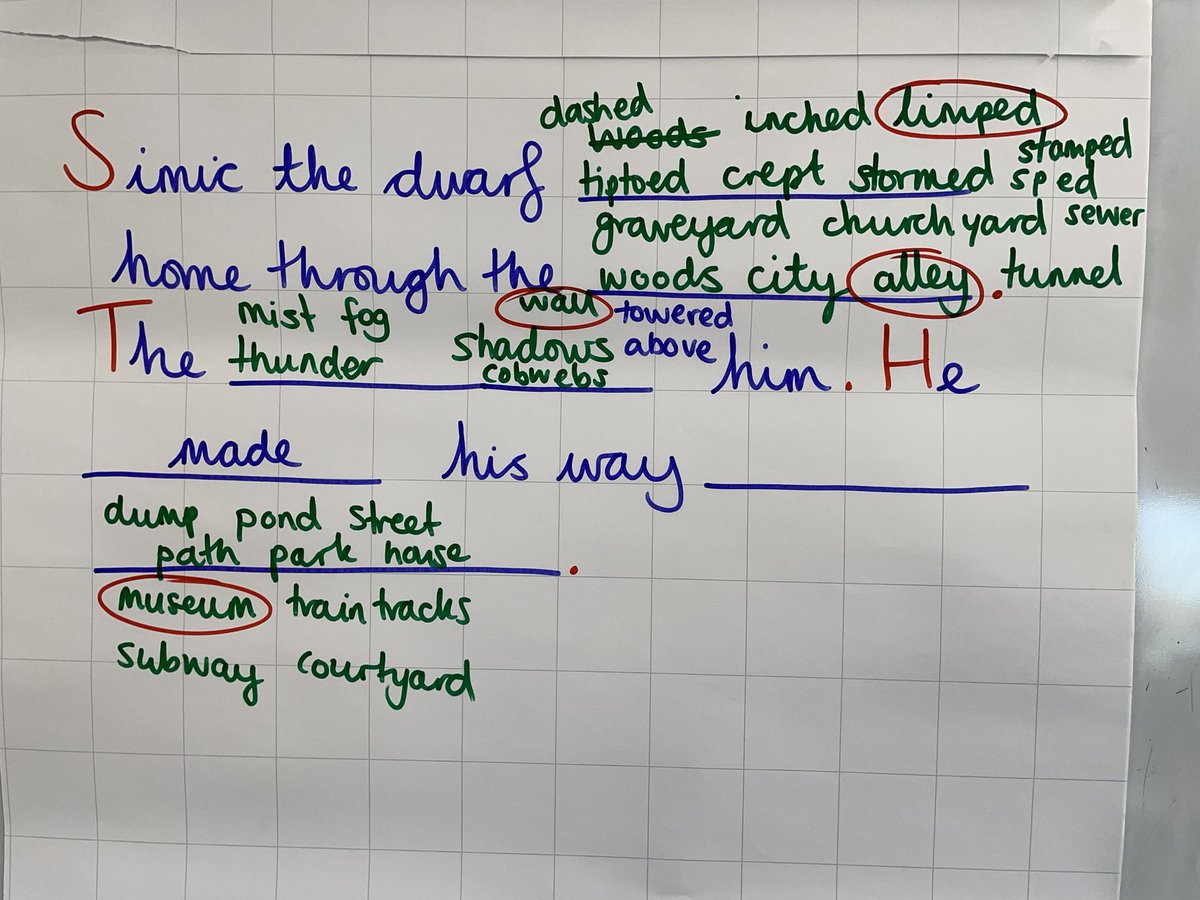 dashed woods inched limped
Simic the dwarf tiptoed crept stormed sped stamped
graveyard churchyard sewer
home through the woods city alley. tunnel
mist fog wall towered
The thunder shadows above him. He
cobwebs
made his way
dump pond street
path park house.
museum train tracks
subway courtyard